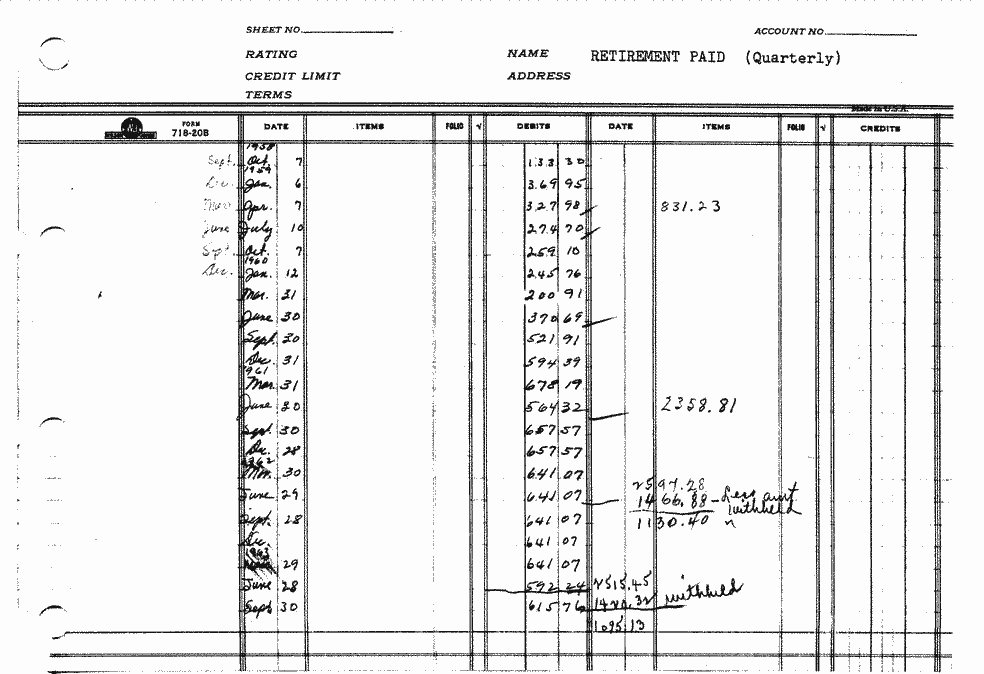 SHEET NO. ACCOUNT NO.
RATING NAME RETIREMENT PAID (Quarterly)
CREDIT LIMIT ADDRESS
TERMS
Made in U.S.A.
FORM 718-20B DATE ITEMS FOLIO √ DEBITS DATE ITEMS FOLIO √ CREDITS
1958
Sept. Oct. 7 133 30
1959
Dec. Jan. 6 369 95
Mar. Apr. 7 327 98 831.23
June July 10 274 70
Sept. Oct. 7 259 10
1960
Dec. Jan. 12 245 76
Mar. 31 200 91
June 30 370 69
Sept. 30 521 91
Dec. 31 594 39
961
Mar. 31 678 19
June 30 564 32 2358.81
Sept. 30 657 57
Dec. 28 657 57
1962
Mar. 30 641 07
2597.28
June 29 641 07 1466.88 - Less amt
withheld
Sept. 28 641 07 1130.40
Dec. 641 07
1963
29 641 07
June 28 592 24 2515.45
Sept 30 615 76 1420.32 withheld
1095.13